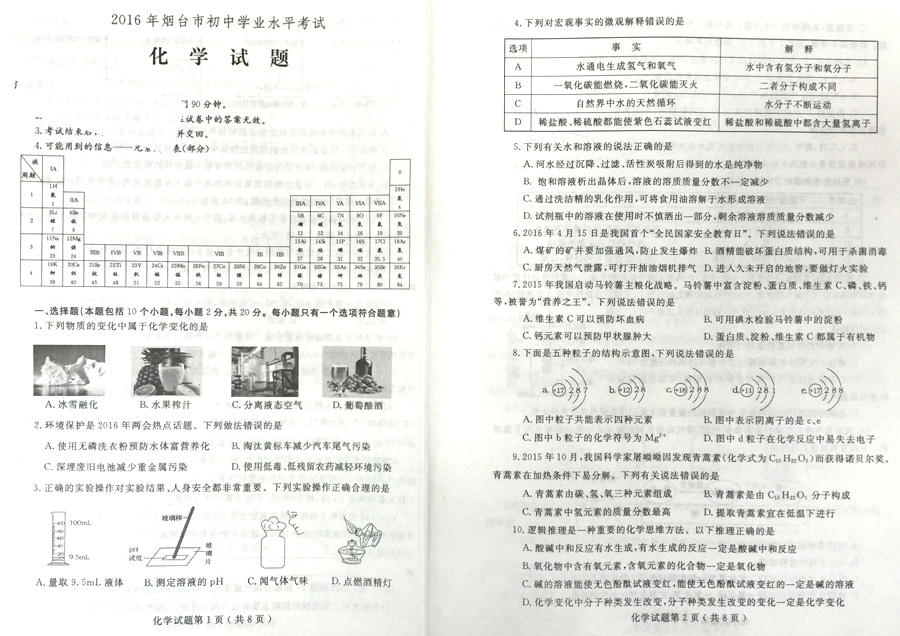 2016年烟台市初中学业水平考试
化 学 试 题
90分钟。
试卷中的答案无效。
3.考试结束后,
并交回。
4.可能用到的信息——元
表(部分)
族
周期
ⅠA
0
1
1H
氢
1
ⅡA
ⅢA ⅣA ⅤA ⅥA ⅦA
2He
氦
4
2
3Li
锂
7
4Be
铍
9
5B
硼
11
6C
碳
12
7N
氮
14
8O
氧
16
9F
氟
19
10Ne
氖
20
3
11Na
钠
23
12Mg
镁
24
ⅢB ⅣB ⅤB ⅥB ⅦB ⅧB ⅠB ⅡB
13Al
铝
27
14Si
硅
28
15P
磷
31
16S
硫
32
17Cl
氯
35.5
18Ar
氩
40
4
19K
钾
39
20Ca
钙
40
21Sc
钪
45
22Ti
钛
48
23V
钒
51
24Cr
铬
52
25Mn
锰
55
26Fe
铁
56
27Co
钴
59
28Ni
镍
59
29Cu
铜
64
30Zn
锌
65
31Ga
镓
70
32Ge
锗
73
33As
砷
75
34Se
硒
79
35Br
溴
80
36Kr
氪
84
一、选择题(本题包括10个小题,每小题2分,共20分。每小题只有一个选项符合题意)
1.下列物质的变化中属于化学变化的是
A.冰雪融化 B.水果榨汁 C.分离液态空气 D.葡萄酿酒
2.环境保护是2016年两会热点话题。下列做法错误的是
A.使用无磷洗衣粉预防水体富营养化 B.淘汰黄标车减少汽车尾气污染
C.深埋废旧电池减少重金属污染 D.使用低毒、低残留农药减轻环境污染
3.正确的实验操作对实验结果、人身安全都非常重要。下列实验操作正确合理的是
100mL
9.5mL
玻璃棒
pH
试纸
玻
璃
片
A.量取9.5mL液体 B.测定溶液的pH C.闻气体气味 D.点燃酒精灯
化学试题第1页(共8页)
4.下列对宏观事实的微观解释错误的是
选项 事 实 解 释
A 水通电生成氢气和氧气 水中含有氢分子和氧分子
B 一氧化碳能燃烧,二氧化碳能灭火 二者分子构成不同
C 自然界中水的天然循环 水分子不断运动
D 稀盐酸、稀硫酸都能使紫色石蕊试液变红 稀盐酸和稀硫酸中都含大量氢离子
5.下列有关水和溶液的说法正确的是
A.河水经过沉降、过滤、活性炭吸附后得到的水是纯净物
B.饱和溶液析出晶体后,溶液的溶质质量分数不一定减少
C.通过洗洁精的乳化作用,可将食用油溶解于水形成溶液
D.试剂瓶中的溶液在使用时不慎洒出一部分,剩余溶液溶质质量分数减少
6.2016年4月15日是我国首个“全民国家安全教育日”。下列说法错误的是
A.煤矿的矿井要加强通风,防止发生爆炸 B.酒精能破坏蛋白质结构,可用于杀菌消毒
C.厨房天然气泄露,可打开抽油烟机排气 D.进入久未开启的地窖,要做灯火实验
7.2015年我国启动马铃薯主粮化战略。马铃薯中富含淀粉、蛋白质、维生素C、磷、铁、钙
等,被誉为“营养之王”。下列说法错误的是
A.维生素C可以预防坏血病 B.可用碘水检验马铃薯中的淀粉
C.钙元素可以预防甲状腺肿大 D.蛋白质、淀粉、维生素C都属于有机物
8.下面是五种粒子的结构示意图,下列说法错误的是
a. +17 2 8 7 b. +12 2 8 c. +18 2 8 8 d. +11 2 8 1 e. +17 2 8 8
A.图中粒子共能表示四种元素 B.图中表示阴离子的是c、e
C.图中b粒子的化学符号为Mg²⁺ D.图中d粒子在化学反应中易失去电子
9.2015年10月,我国科学家屠呦呦因发现青蒿素(化学式为C₁₅H₂₂O₅)而获得诺贝尔奖。
青蒿素在加热条件下易分解。下列有关说法错误的是
A.青蒿素由碳、氢、氧三种元素组成 B.青蒿素是由C₁₅H₂₂O₅分子构成
C.青蒿素中氢元素的质量分数最高 D.提取青蒿素宜在低温下进行
10.逻辑推理是一种重要的化学思维方法。以下推理正确的是
A.酸碱中和反应有水生成,有水生成的反应一定是酸碱中和反应
B.氧化物中含有氧元素,含氧元素的化合物一定是氧化物
C.碱的溶液能使无色酚酞试液变红,能使无色酚酞试液变红的一定是碱的溶液
D.化学变化中分子种类发生改变,分子种类发生改变的变化一定是化学变化
化学试题第2页(共8页)